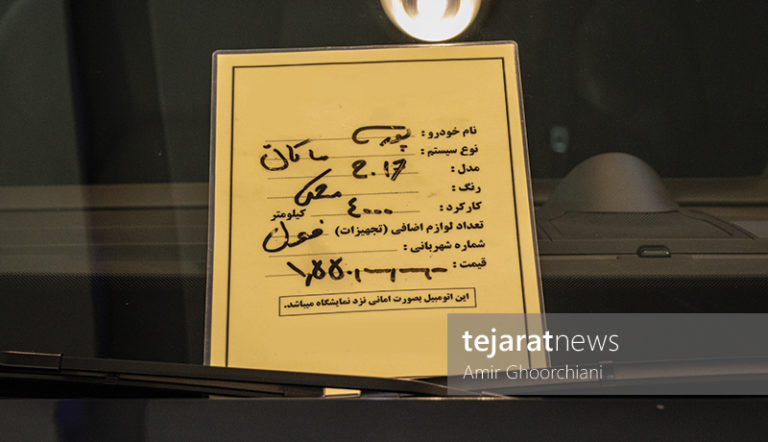 نام خودرو : پورشه
نوع سیستم : ماکان
مدل : 2017
رنگ : مشکی
کارکرد : ۴۰۰۰ کیلومتر
تعداد لوازم اضافی (تجهیزات) فول
شماره شهربانی :
قیمت : ۱,۵۵۰,۰۰۰,۰۰۰
این اتومبیل بصورت امانی نزد نمایشگاه میباشد.
tejaratnews
Amir Ghoorchiani